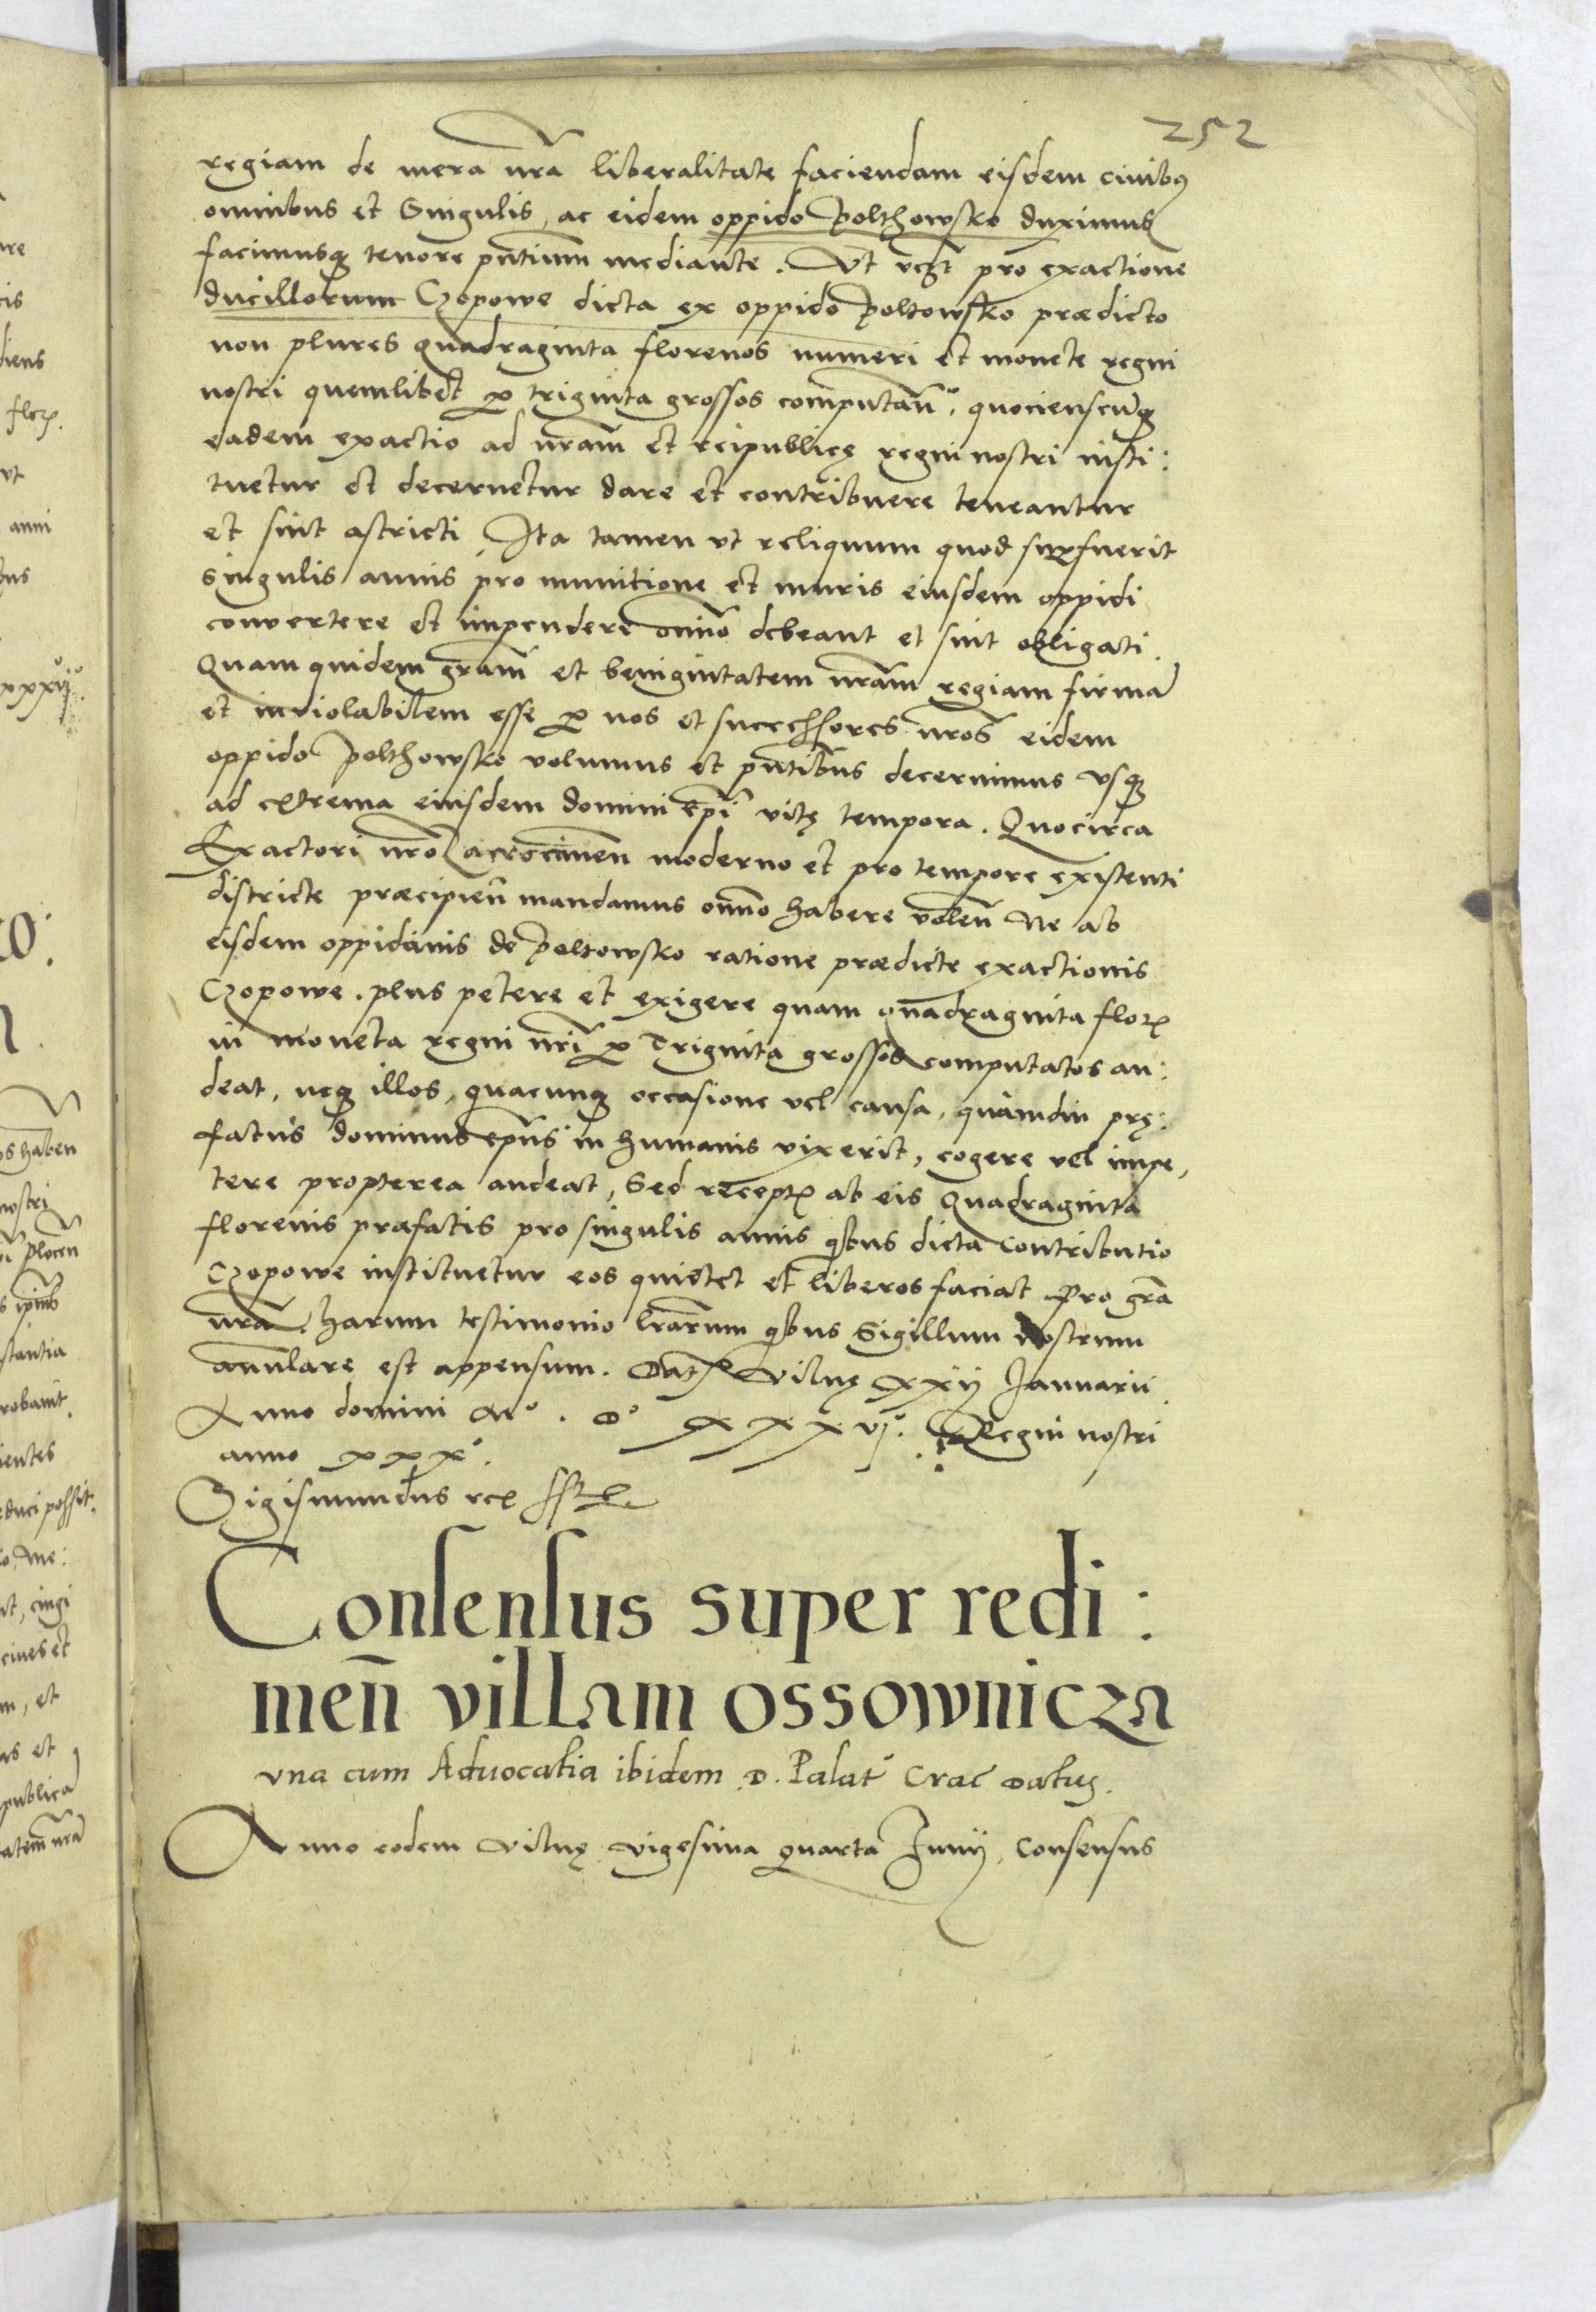 252
regiam de mera nr̄a liberalitate faciendam eisdem ciuibꝫ
omnibus et Singulis, ac eidem oppido Polthowsko duximus
facimusqꝫ tenore pn̄tium mediante. Vt vꝫ pro exactione
ducillorum Czopowe dicta ex oppido Poltowsko prædicto
non plures quadraginta florenos numeri et monete regni
nostri quemlibet ꝑ triginta grossos computan̄, quocienscūqꝫ
eadem exactio ad nr̄am et reipublicę regni nostri insti:
tuetur et decernetur dare et contribuere teneantur
et sint astricti, Ita tamen vt reliquum quod suꝑfuerit
singulis annis pro munitione et muris eiusdem oppidi
convertere et impendere om̄no debeant et sint obligati.
Quam quidem gr̄am et benignitatem nr̄am regiam firmā
et inviolabilem esse ꝑ nos et successores nr̄os eidem
oppido Polthowsko volumus et pn̄tibus decernimus vsqꝫ
ad extrema eiusdem domini ep̄i vitę tempora. Quocirca
Exactori nr̄o Zacroczimen̄ moderno et pro tempore existenti
districte præcipien̄ mandamus om̄no habere volen̄ Ne ab
eisdem oppidanis de Poltowsko ratione prædicte exactionis
Czopowe. plus petere et exigere quam quadraginta floꝝ
in moneta regni nr̄i ꝑ Triginta grossos computatos au:
deat, neqꝫ illos, quacunqꝫ occasione vel causa, quamdiu prę:
fatus dominus ep̄us in humanis vixerit, cogere vel impe,
tere propterea audeat, Sed receptꝭ ab eis Quadraginta
florenis præfatis pro singulis annis qͥbus dicta Contributio
Czopowe instituetur eos quietet et liberos faciat Pro gr̄a
nr̄a. Harum testimonio lr̄arum qͥbus Sigillum Nostrum
annulare est appensum. Datꝭ Vilnę xxij Januarii
Anno domini Mº. Dº xxxvjº. Regni nostri
anno xxxº.
Sigismundus rex sst
Consensus super redi:
men̄ villam ossownicza
vna cum Aduocatia ibidem D. Palat̄ Crac̄ datus.
Anno eodem Vilnę vigesima quarta Junij, Consensus